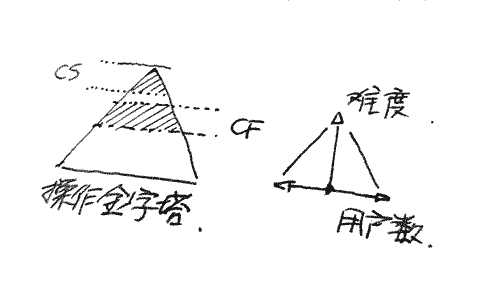 CS
CF
操作金字塔.
难度.
用户数.